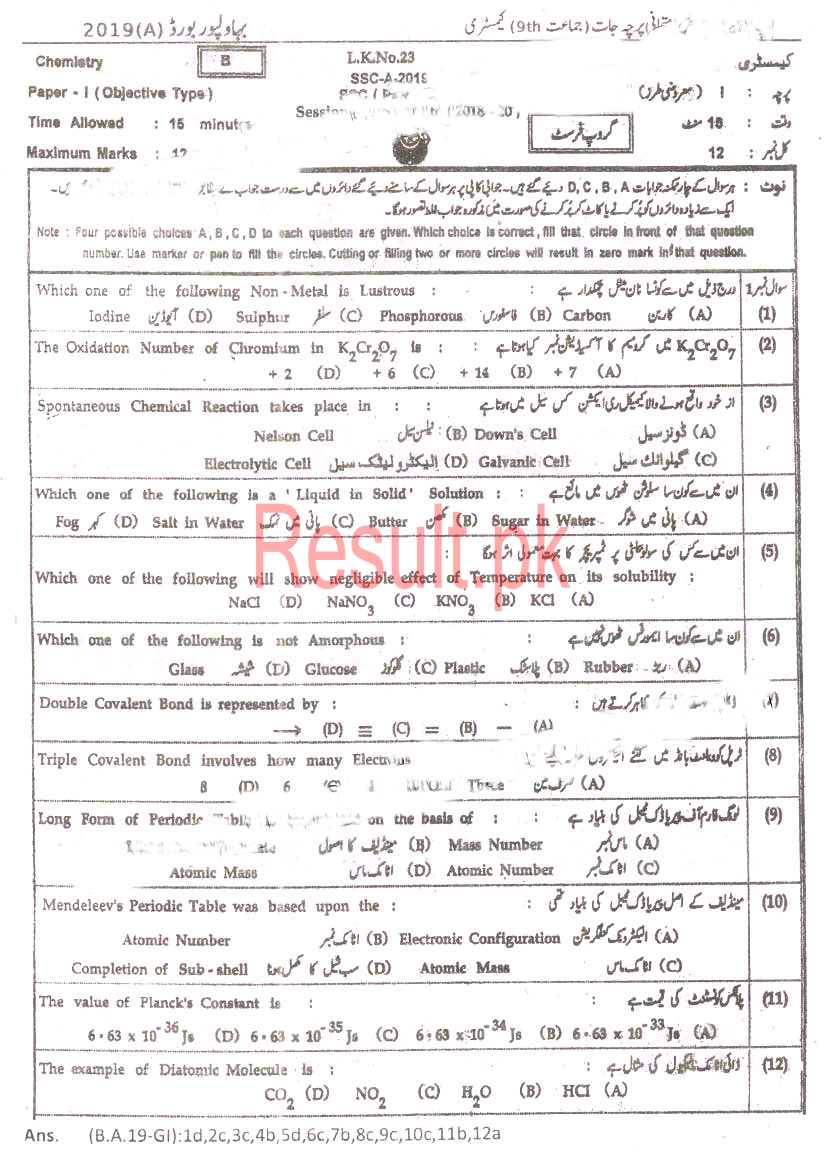 بہاولپور بورڈ 2019(A) پرچہ جات (جماعت 9th) کیمسٹری
Chemistry B L.K.No.23 کیمسٹری
SSC-A-2019
Paper - I (Objective Type) پرچہ : I (معروضی طرز)
Time Allowed : 15 minutes وقت : 15 منٹ
Maximum Marks : 12 گروپ فرسٹ کل نمبر : 12
نوٹ : ہر سوال کے چار ممکنہ جوابات D, C, B, A دیئے گئے ہیں۔ جوابی کاپی پر ہر سوال کے سامنے دیئے گئے دائروں میں سے درست جواب کے
ایک سے زیادہ دائروں کو پُر کرنے یا کاٹ کر پُر کرنے کی صورت میں مذکورہ جواب غلط تصور ہوگا۔
Note : Four possible choices A, B, C, D to each question are given. Which choice is correct, fill that circle in front of that question
number. Use marker or pen to fill the circles. Cutting or filling two or more circles will result in zero mark in that question.
Which one of the following Non-Metal is Lustrous : : درج ذیل میں سے کونسا نان میٹل چمکدار ہے سوال نمبر 1
Iodine آیوڈین (D) Sulphur سلفر (C) Phosphorous فاسفورس (B) Carbon کاربن (A) (1)
The Oxidation Number of Chromium in K₂Cr₂O₇ is : : K₂Cr₂O₇ میں کرومیم کا آکسیڈیشن نمبر کیا ہوتا ہے (2)
+ 2 (D) + 6 (C) + 14 (B) + 7 (A)
Spontaneous Chemical Reaction takes place in : : از خود واقع ہونے والا کیمیکل ری ایکشن کس سیل میں ہوتا ہے (3)
Nelson Cell نیلسن سیل (B) Down's Cell ڈونز سیل (A)
Electrolytic Cell الیکٹرولیٹک سیل (D) Galvanic Cell گیلوانک سیل (C)
Which one of the following is a 'Liquid in Solid' Solution : : ان میں سے کون سا سلوشن ٹھوس میں مائع ہے (4)
Fog کہر (D) Salt in Water پانی میں نمک (C) Butter مکھن (B) Sugar in Water پانی میں شوگر (A)
ان میں سے کس کی سولوبیلٹی پر ٹمپریچر کا بہت معمولی اثر ہوگا : (5)
Which one of the following will show negligible effect of Temperature on its solubility :
NaCl (D) NaNO₃ (C) KNO₃ (B) KCl (A)
Which one of the following is not Amorphous : : ان میں سے کون سا ایمورفس ٹھوس نہیں ہے (6)
Glass شیشہ (D) Glucose گلوکوز (C) Plastic پلاسٹک (B) Rubber ربڑ (A)
Double Covalent Bond is represented by : : ظاہر کرتے ہیں
⟶ (D) ≡ (C) = (B) − (A)
Triple Covalent Bond involves how many ٹرپل کوویلنٹ بانڈ میں کتنے (8)
8 (D) 6 Three صرف تین (A)
Long Form of Periodic on the basis of : : لونگ فارم آف پیریاڈک ٹیبل کی بنیاد ہے (9)
مینڈلیف کا اصول (B) Mass Number ماس نمبر (A)
Atomic Mass اٹامک ماس (D) Atomic Number اٹامک نمبر (C)
Mendeleev's Periodic Table was based upon the : : مینڈلیف کے اصل پیریاڈک ٹیبل کی بنیاد تھی (10)
Atomic Number اٹامک نمبر (B) Electronic Configuration الیکٹرونک کنفگریشن (A)
Completion of Sub-shell سب شیل کا مکمل ہونا (D) Atomic Mass اٹامک ماس (C)
The value of Planck's Constant is : : پلانکس کونسٹنٹ کی قیمت ہے (11)
6.63 x 10⁻³⁶Js (D) 6.63 x 10⁻³⁵Js (C) 6.63 x 10⁻³⁴Js (B) 6.63 x 10⁻³³Js (A)
The example of Diatomic Molecule is : : ڈائی اٹامک مالیکیول کی مثال ہے (12)
CO₂ (D) NO₂ (C) H₂O (B) HCl (A)
Result.pk
Ans. (B.A.19-GI):1d,2c,3c,4b,5d,6c,7b,8c,9c,10c,11b,12a